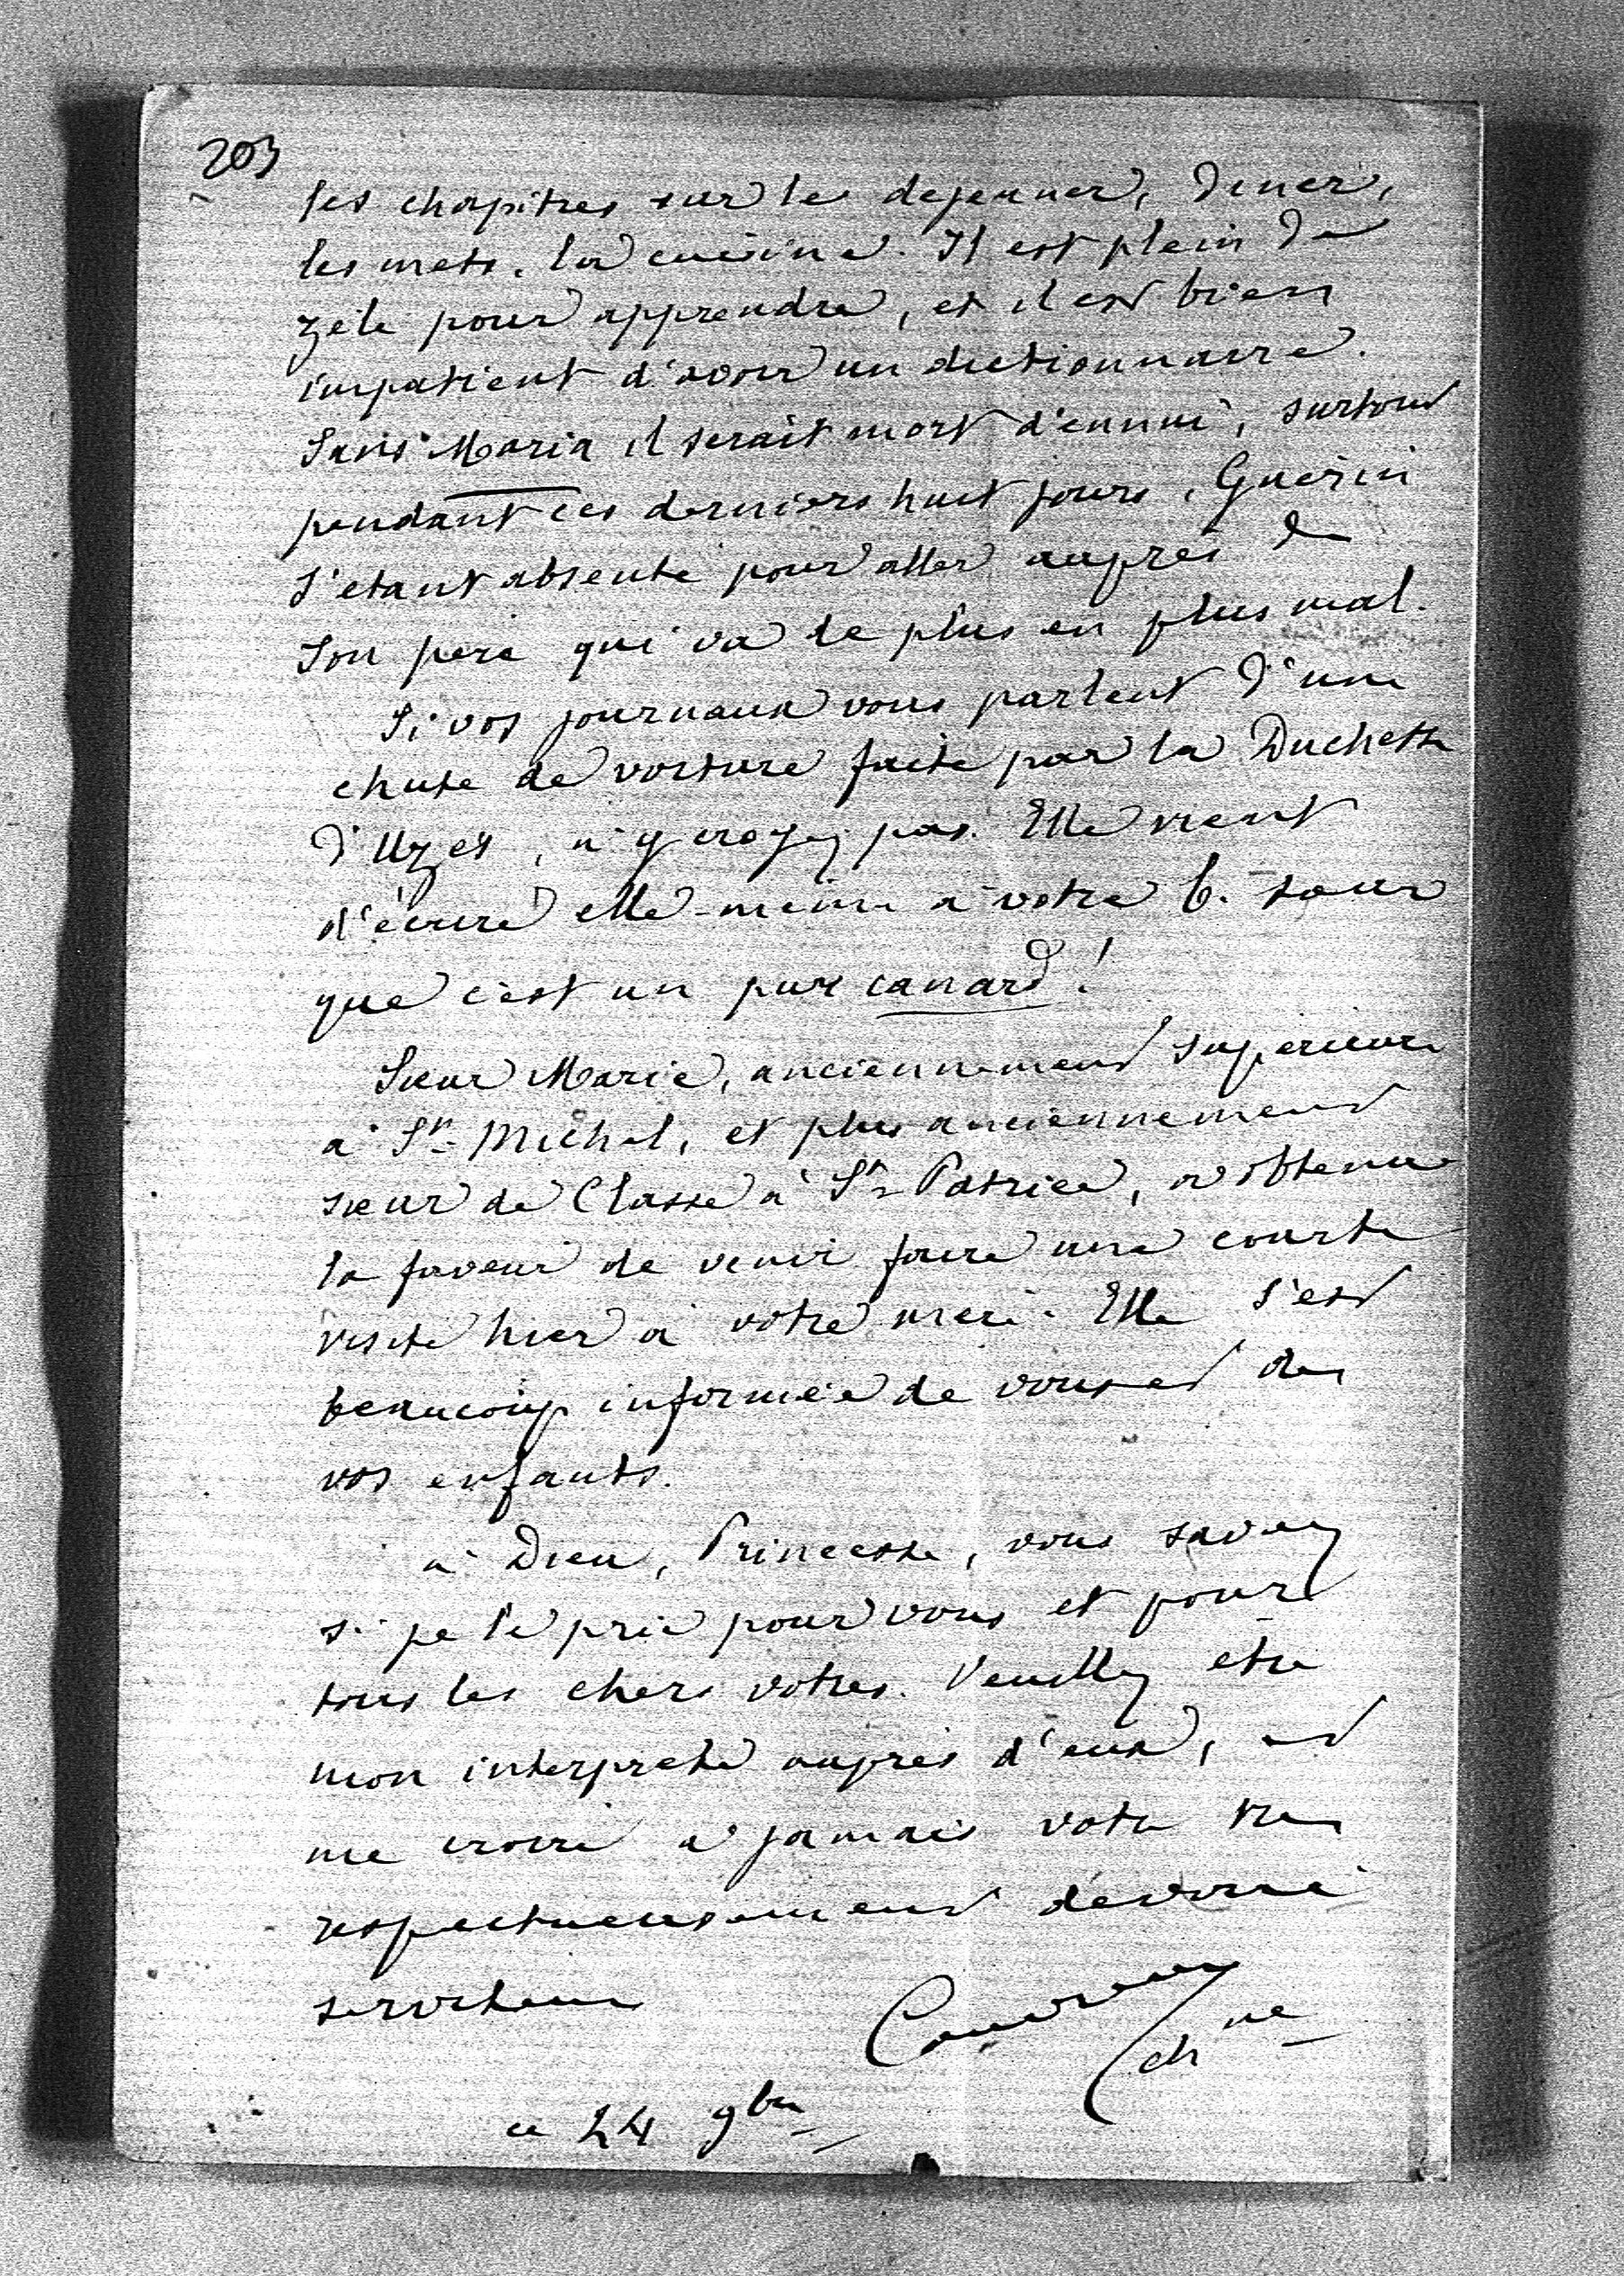 203
les chapitres sur le dejeuner, diner,
les mets, la cuisine. Il est plein de
zèle pour apprendre, et il est bien
impatient d'avoir un dictionnaire.
Sans Maria il serait mort d'ennui, surtout
pendant ces derniers huit jours, Guérin
s'etant absenté pour aller auprès de
son père qui va de plus en plus mal.
Si vos journaux vous parlent d'une
chute de voiture faite par la Duchesse
d'Uzes, n'y croyez pas. Elle vient
d'écrire elle-même à votre b. sœur
que c'est un pur canard !
Sœur Marie, anciennement supérieure
à St-Michel, et plus anciennement
sœur de Classe à St-Patrice, a obtenu
la faveur de venir faire une courte
visite hier à votre mère. Elle s'est
beaucoup informée de vous et de
vos enfants.
à Dieu, Princesse, vous savez
si je le prie pour vous et pour
tous les chers votres. Veuillez être
mon interprète auprès d'eux, et
me croire à jamais votre très
respectueusement dévoué
serviteur
chne
ce 24 9bre